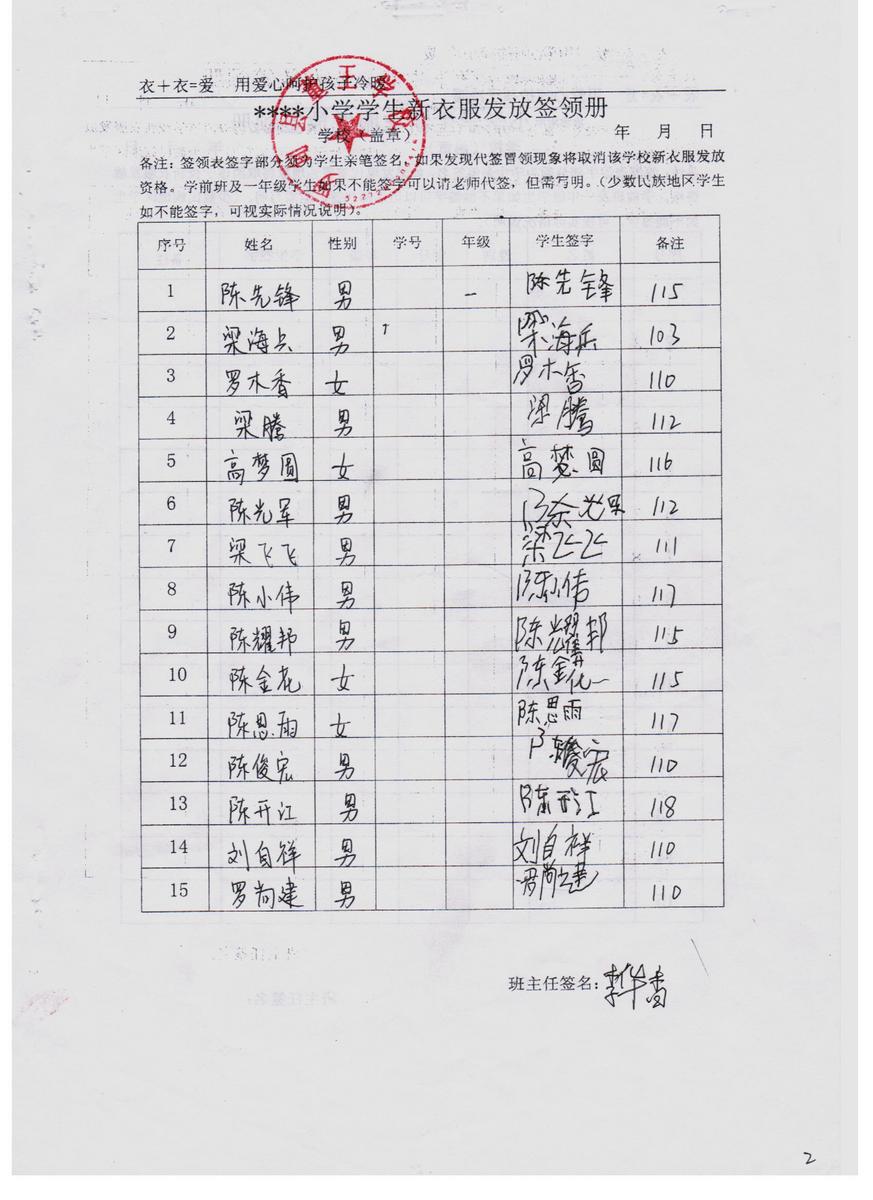 衣+衣=爱 用爱心呵护孩子冷暖
****小学学生新衣服发放签领册
学校(盖章) 年 月 日
备注:签领表签字部分须为学生亲笔签名,如果发现代签冒领现象将取消该学校新衣服发放
资格。学前班及一年级学生如果不能签字可以请老师代签,但需写明。(少数民族地区学生
如不能签字,可视实际情况说明)。
序号 姓名 性别 学号 年级 学生签字 备注
1 陈先锋 男 一 陈先锋 115
2 梁海兵 男 梁海兵 103
3 罗木香 女 罗木香 110
4 梁腾 男 梁腾 112
5 高梦圆 女 高梦圆 116
6 陈光军 男 陈光军 112
7 梁飞飞 男 梁飞飞 111
8 陈小伟 男 陈小伟 117
9 陈耀邦 男 陈耀邦 115
10 陈金花 女 陈金花 115
11 陈思雨 女 陈思雨 117
12 陈俊宏 男 陈俊宏 110
13 陈开江 男 陈开江 118
14 刘自祥 男 刘自祥 110
15 罗尚建 男 罗尚建 110
班主任签名:李华香
2